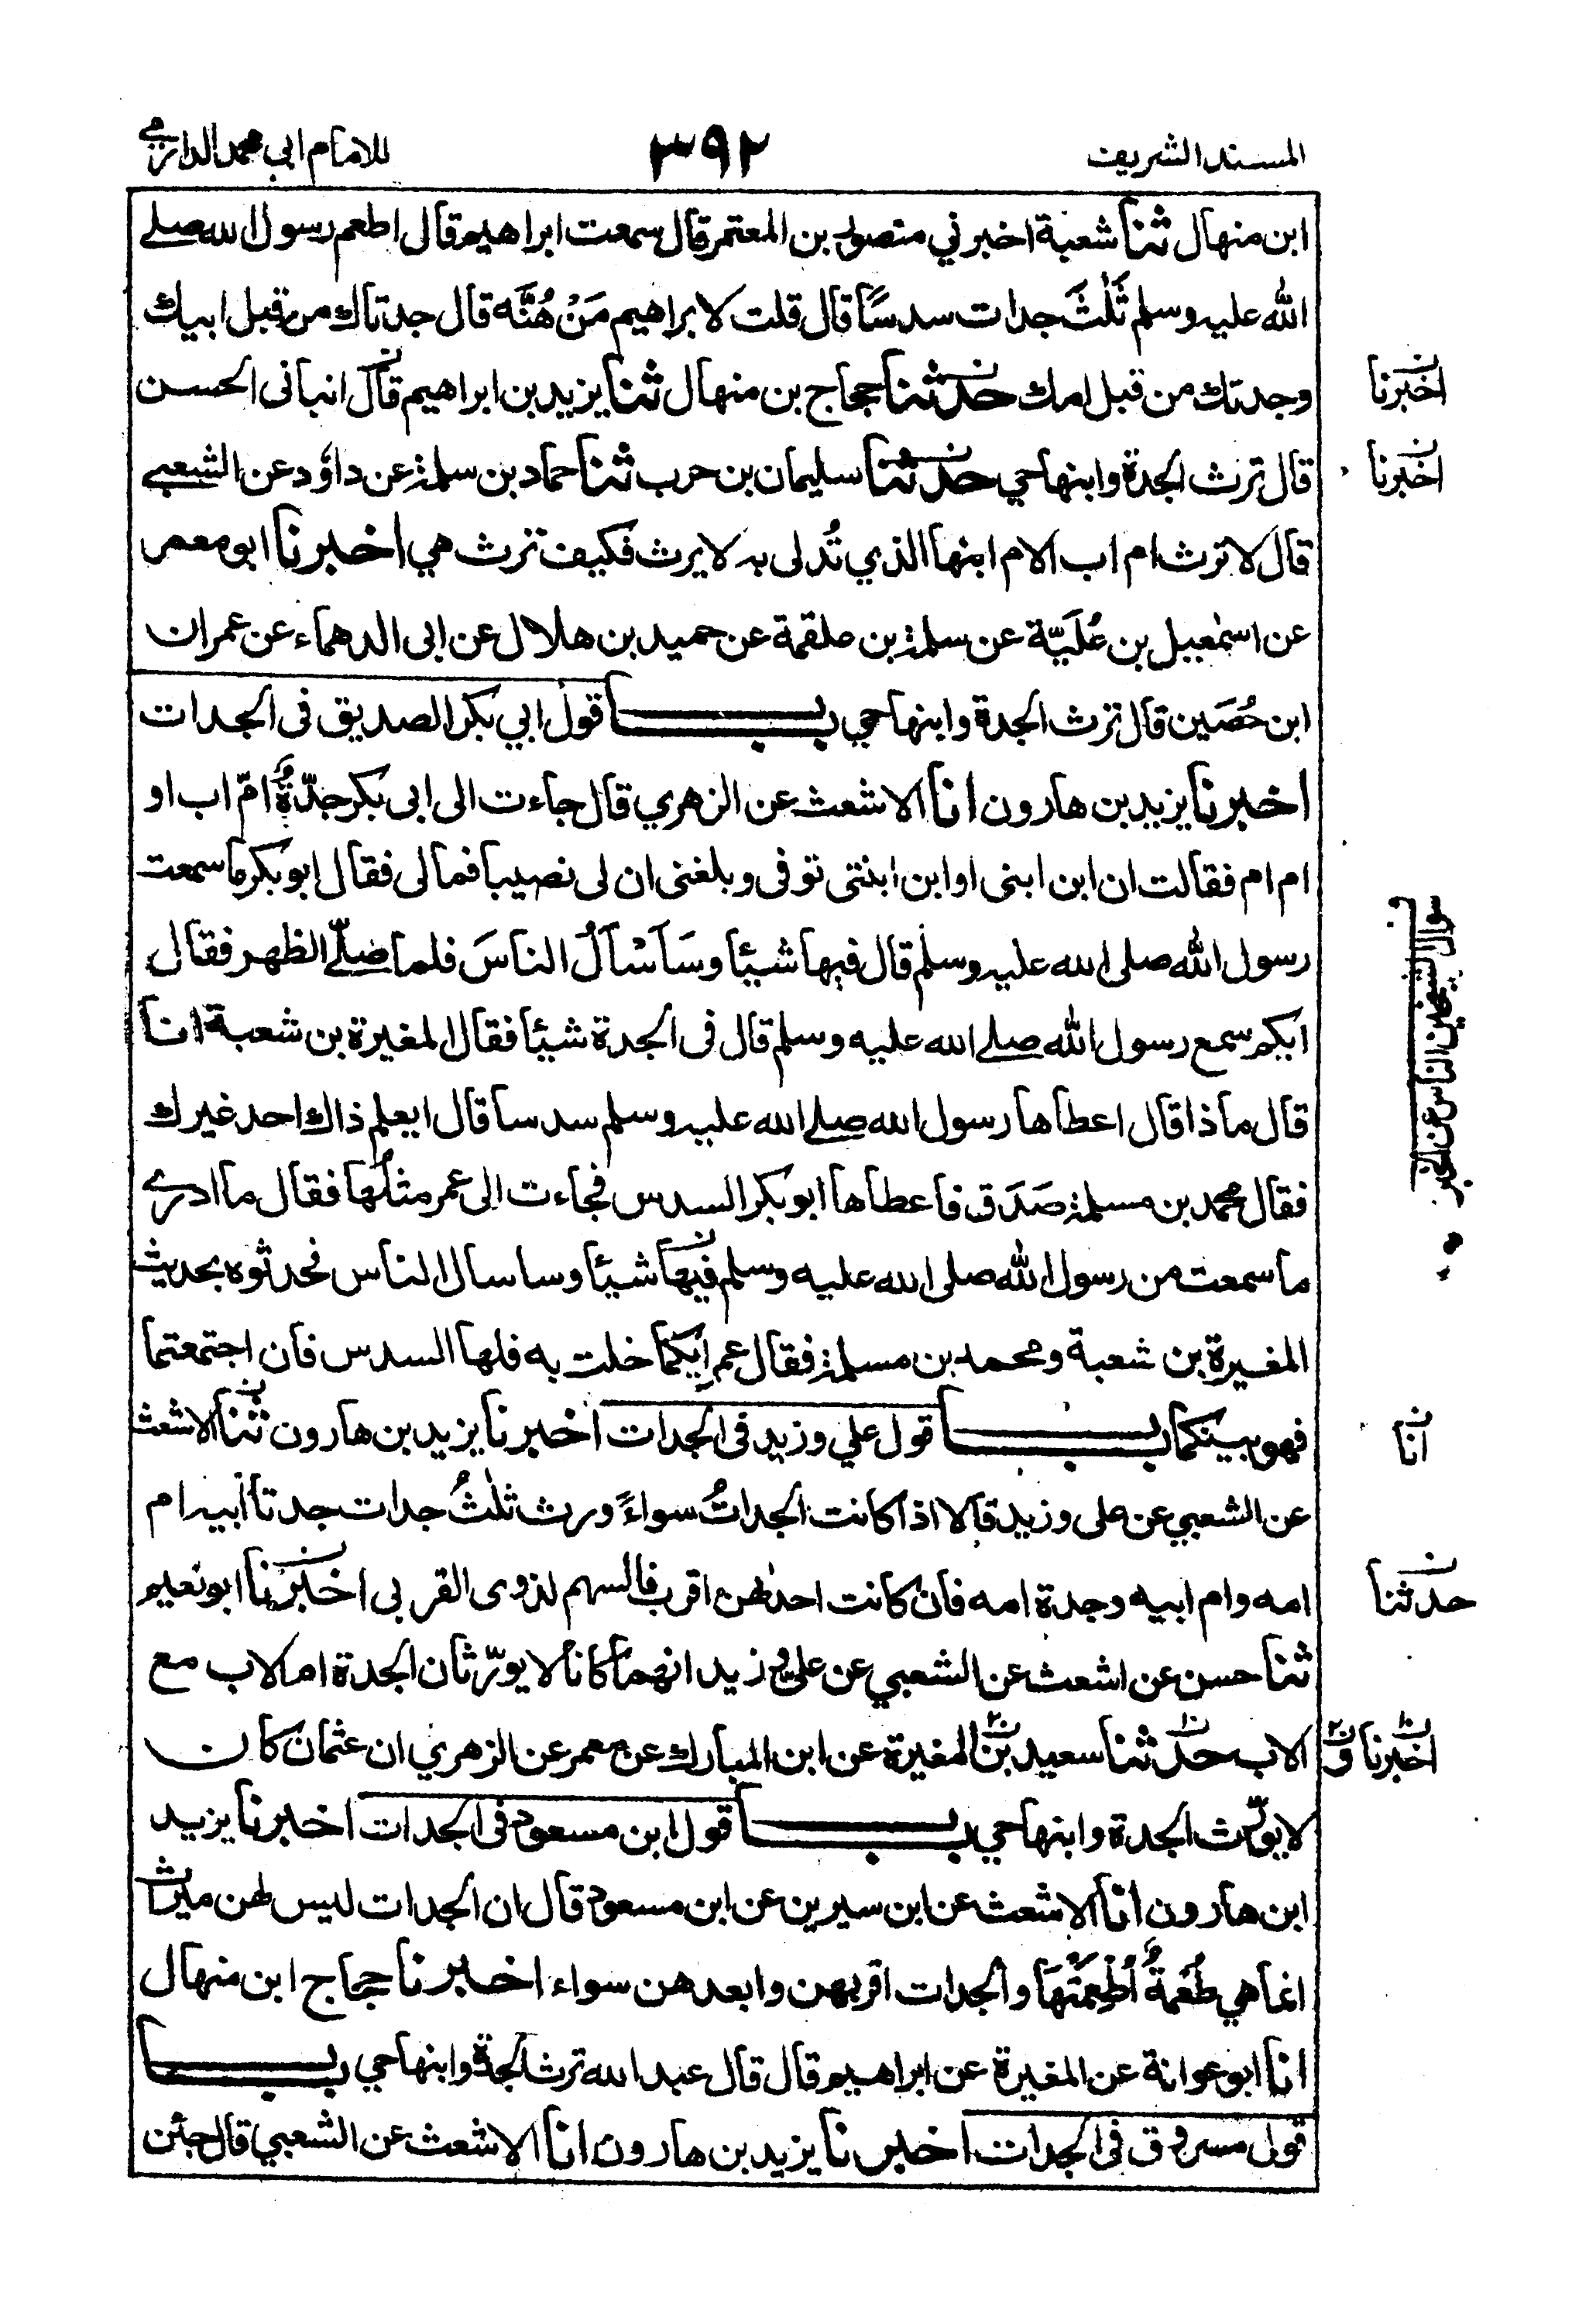 المسند الشريف ٣٩٢ للامام ابي محمد الدارمي
ابن منهال ثنا شعبة اخبرني منصور بن المعتمر قال سمعت ابراهيم قال اطعم رسول الله صلے
الله عليه وسلم ثَلٰثَ جدات سدسًا قال قلت لابراهيم مَنْ هُنَّه قال جدتاك من قبل ابيك
وجدتك من قبل امك حدثنا حجاج بن منهال ثنا يزيد بن ابراهيم قال انبانى الحسن
اخبرنا
قال ترث الجدة وابنها حي حدثنا سليمان بن حرب ثنا حماد بن سلمة عن داؤد عن الشعبے
اخبرنا
قال لا ترث ام اب الام ابنها الذي تُدلى به لا يرث فكيف ترث هي اخبرنا ابو معمر
عن اسمٰعيل بن عُلَيّة عن سلمة بن علقمة عن حميد بن هلال عن ابى الدهماء عن عمران
ابن حُصَين قال ترث الجدة وابنها حي باب قول ابي بكر الصديق فى الجدات
اخبرنا يزيد بن هارون انا الاشعث عن الزهري قال جاءت الى ابى بكر جدّةٌ امّ اب او
ام ام فقالت ان ابن ابنى او ابن ابنتى توفى وبلغنى ان لى نصيبا فما لى فقال ابو بكر ما سمعت
رسول الله صلى الله عليه وسلم قال فيها شيئا وسَاَسْاَلُ الناسَ فلما صلّے الظهر فقال
ايكم سمع رسول الله صلے الله عليه وسلم قال فى الجدة شيئا فقال المغيرة بن شعبة انا
سوال الشيخين الناس عن الخبر
قال ماذا قال اعطاها رسول الله صلے الله عليه وسلم سدسا قال ايعلم ذاك احد غيرك
فقال محمد بن مسلمة صَدَق فاعطاها ابو بكر السدس فجاءت الى عمر مثلُها فقال ما ادرے
ما سمعت من رسول الله صلى الله عليه وسلم فيها شيئا وساسال الناس فحدثوه بحديث
المغيرة بن شعبة ومحمد بن مسلمة فقال عمر ايكما خلت به فلها السدس فان اجتمعتما
فهو بينكما باب قول علي وزيد فى الجدات اخبرنا يزيد بن هارون ثنا الاشعث
انا
عن الشعبي عن على وزيد قالا اذا كانت الجداتُ سواءً ورث ثلٰثُ جدات جدتا ابيه ام
امه وام ابيه وجدة امه فان كانت احدٰهن اقرب فالسهم لذوى القربى اخبرنا ابو نعيم
حدثنا
ثنا حسن عن اشعث عن الشعبي عن علي وزيد انهما كانا لا يورّثان الجدة ام الاب مع
الاب حدثنا سعيد بن المغيرة عن ابن المبارك عن معمر عن الزهري ان عثمان كان
اخبرنا
لا يورّث الجدة وابنها حي باب قول ابن مسعود فى الجدات اخبرنا يزيد
ابن هارون انا الاشعث عن ابن سيرين عن ابن مسعود قال ان الجدات ليس لهن ميراث
انما هي طُعْمَةٌ اُطْعِمْنَهَا والجدات اقربهن وابعدهن سواء اخبرنا حجاج ابن منهال
انا ابو عوانة عن المغيرة عن ابراهيم قال قال عبد الله ترث الجدة وابنها حي باب
قول مسروق فى الجدات اخبرنا يزيد بن هارون انا الاشعث عن الشعبي قال جئن